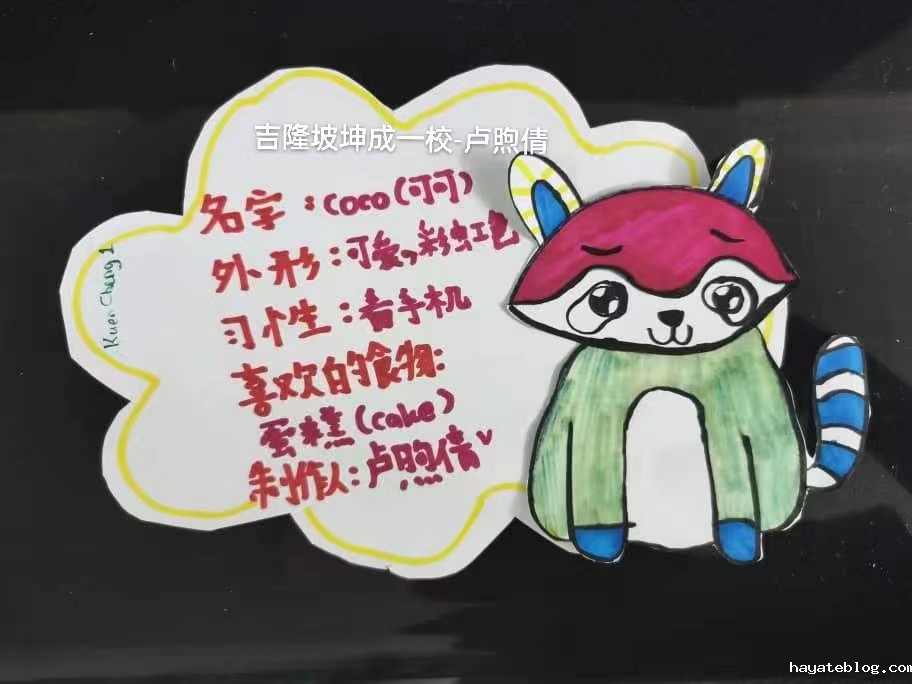 吉隆坡坤成一校-卢煦倩
名字：coco(可可)
外形：可爱，彩虹色
习性：看手机
喜欢的食物：
蛋糕(cake)
制作人：卢煦倩
Kuen Cheng 1
hayateblog.com